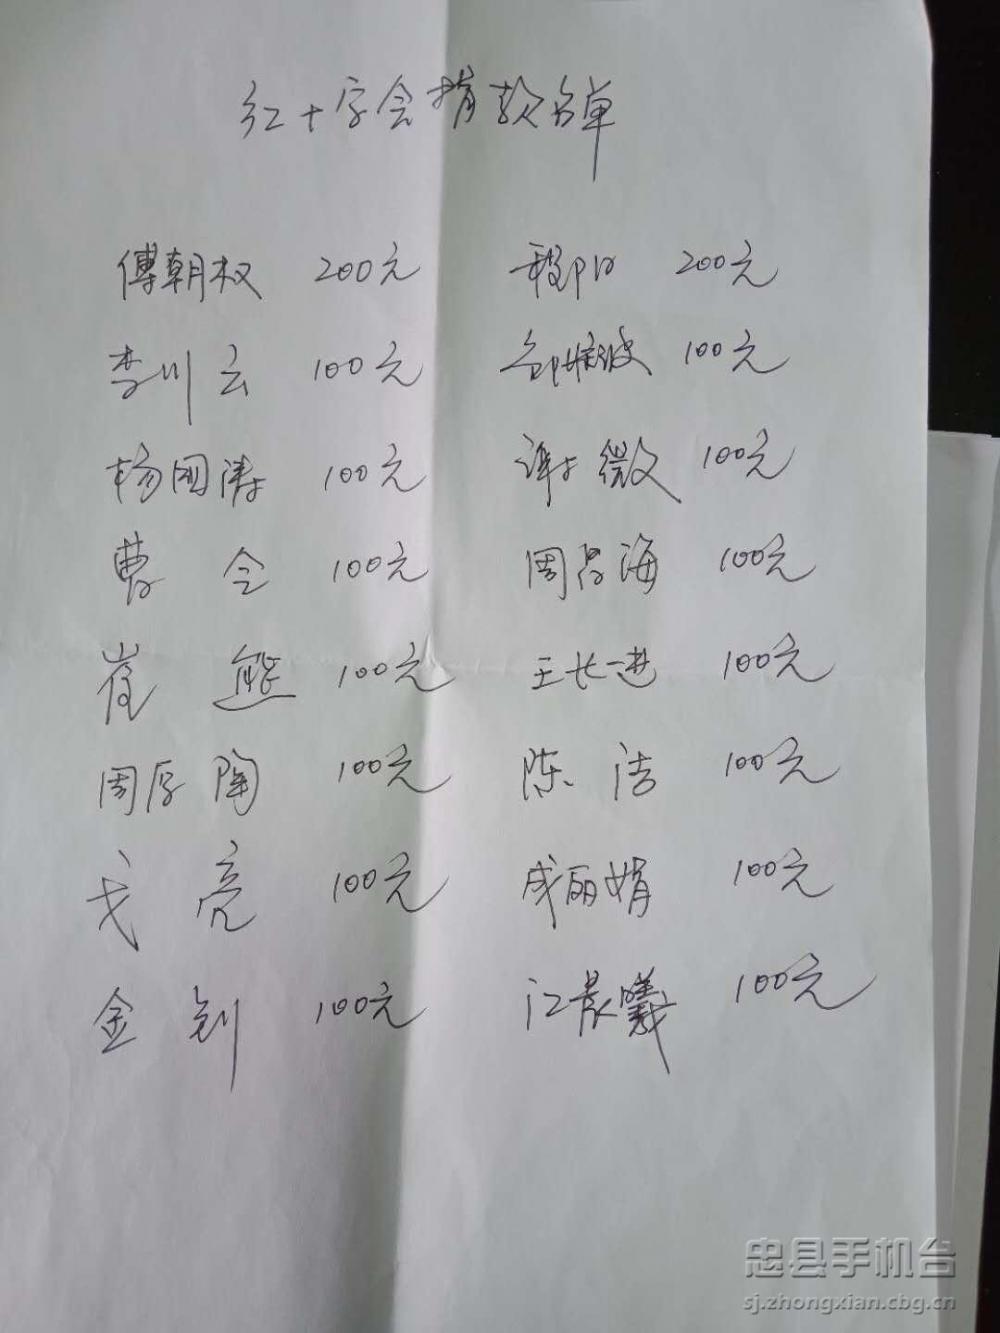 红十字会捐款名单
傅朝权 200元 程阳 200元
李川云 100元 100元
杨国涛 100元 谢微文 100元
曹令 100元 周昌海 100元
崔熊 100元 王长进 100元
周厚陶 100元 陈洁 100元
戈亮 100元 成丽娟 100元
金钊 100元 江晨曦 100元
忠县手机台
sj.zhongxian.cbg.cn